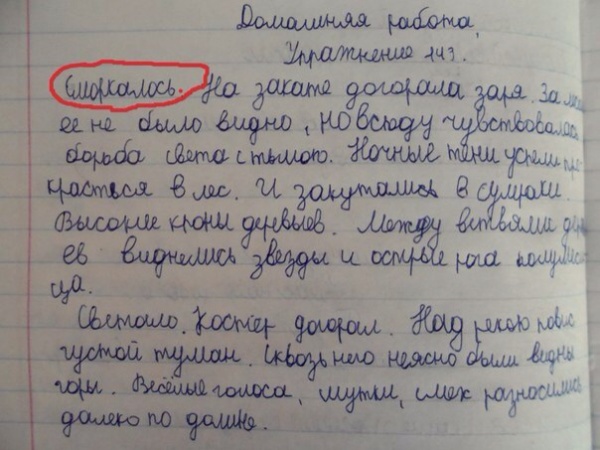 Домашняя работа.
Упражнение 143.
Сморкалось. На закате догорала заря. За
ее не было видно, но всюду чувствовалась
борьба света с тьмою. Ночные тени успели про
красться в лес. И закутались в сумраки
Высокие кроны деревьев. Между ветвями дерев
ев виднелись звезды и острые рога полумеся
ца.
Светало. Костер догорал. Над рекою повис
густой туман. Сквозь него неясно были видны
горы. Весёлые голоса, шутки, смех разносились
далеко по долине.